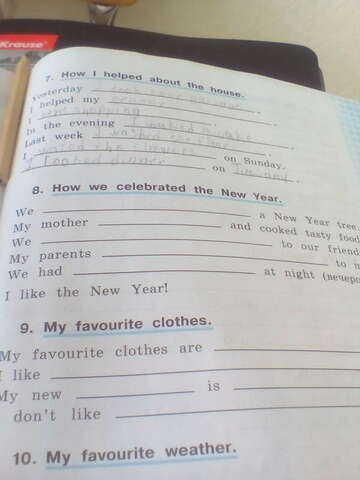 Krause
7. How I helped about the house.
Yesterday
I helped my
I went shopping .
In the evening I
Last week I washed .
I on Sunday.
I cooked dinner on .
8. How we celebrated the New Year.
We a New Year tree.
My mother and cooked tasty food
We to our friend
My parents to m
We had at night (вечер
I like the New Year!
9. My favourite clothes.
My favourite clothes are
I like
My new is
don't like
10. My favourite weather.